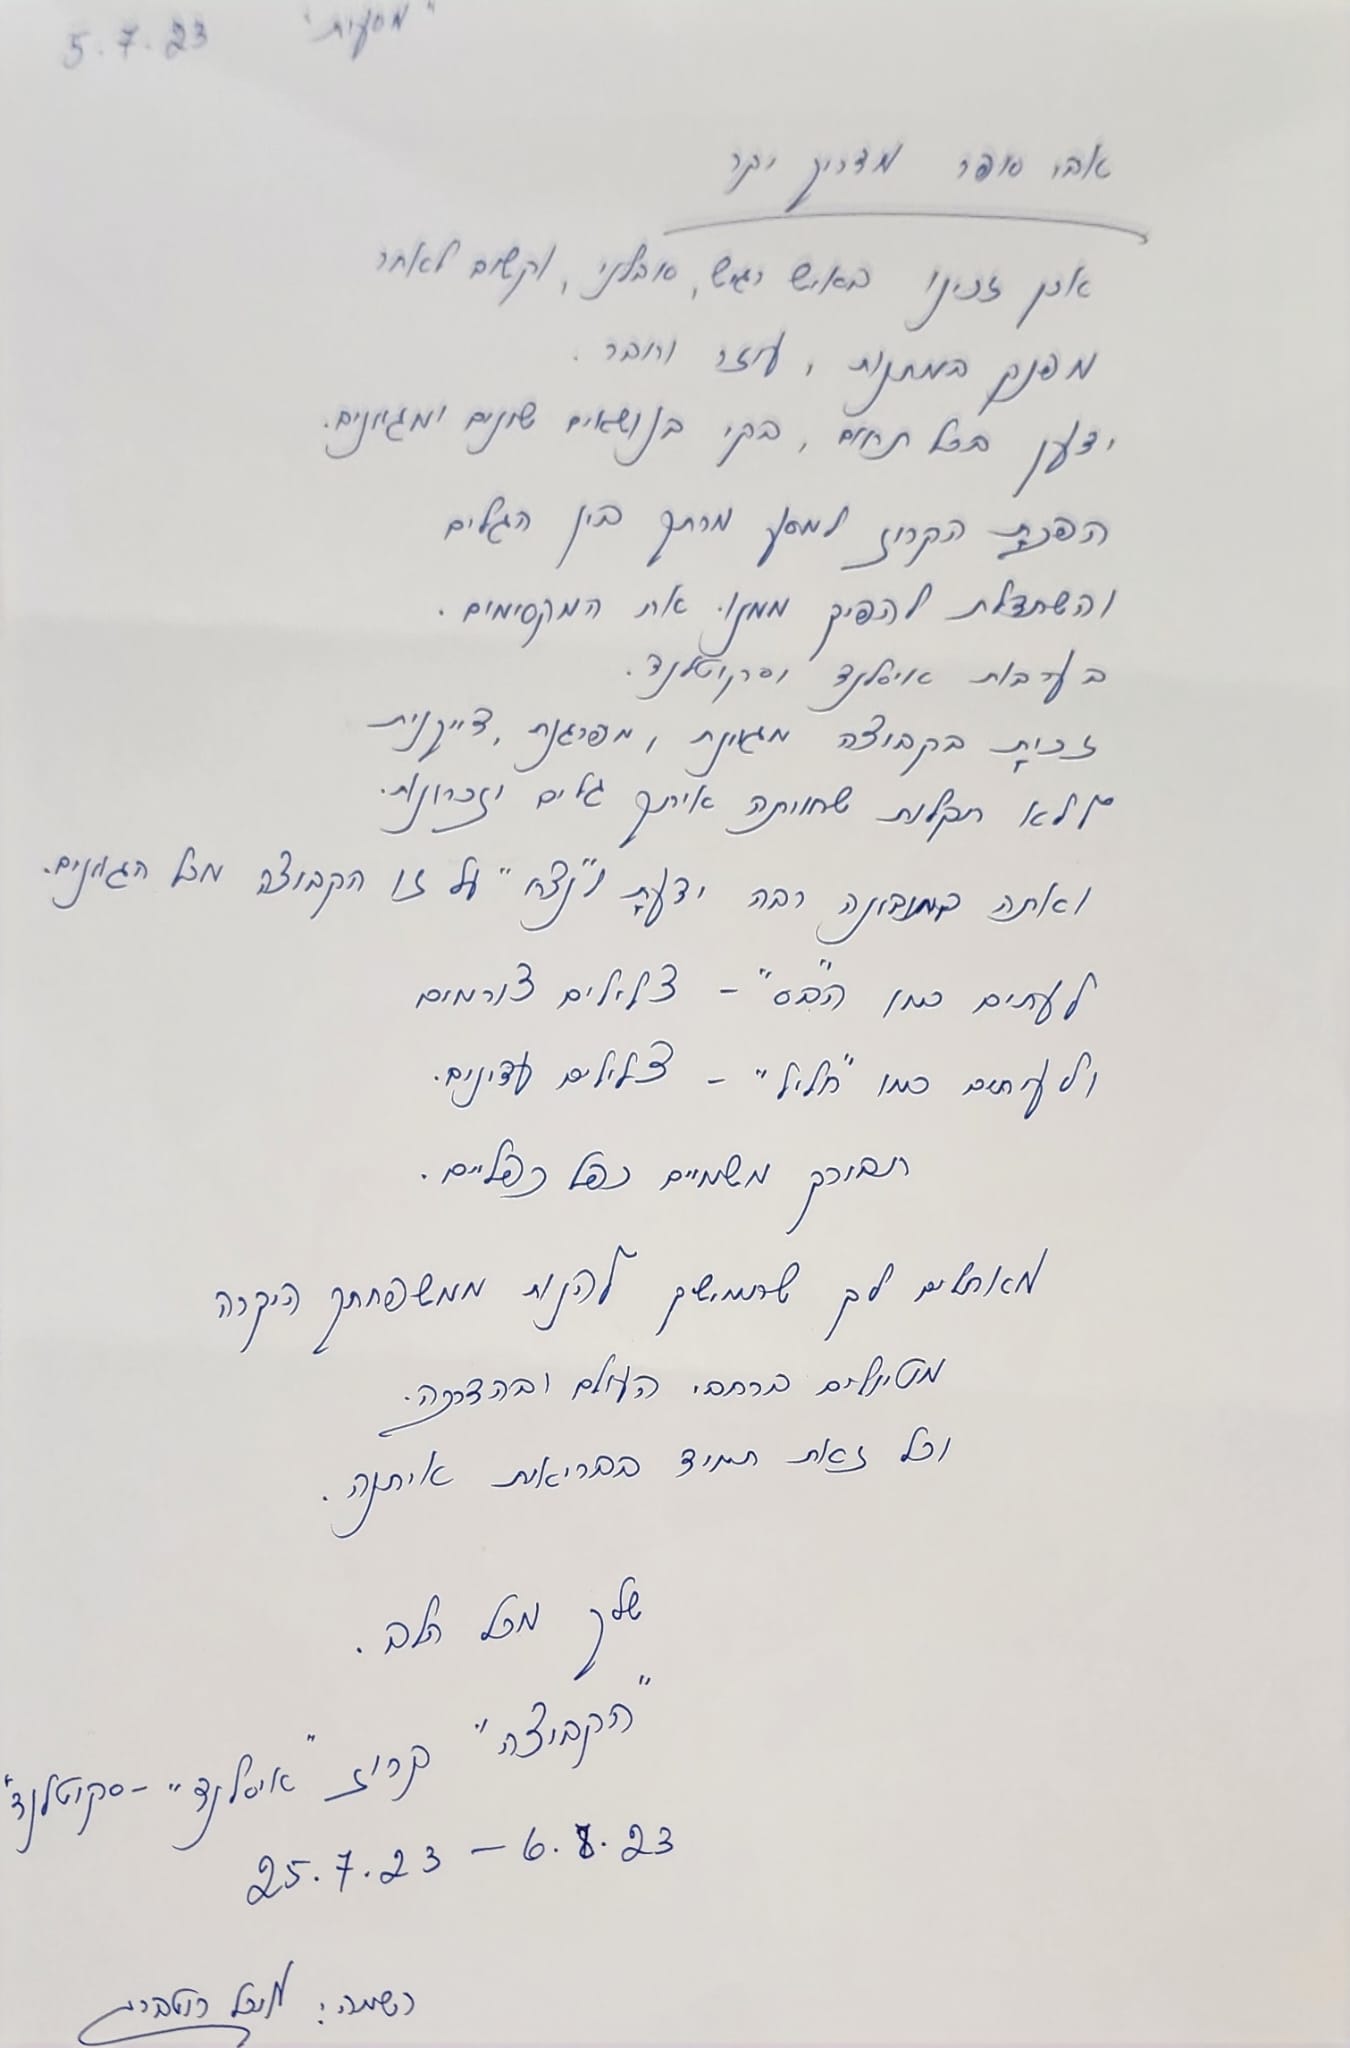 "מסעות" 5.7.23
אבי סופר מדריך יקר
אכן זכינו באיש רגיש, סובלני, וקשוב לאחר
מפנק במתנות, עוזר וחובר.
ידען בכל תחום, בקי בנושאים שונים ומגוונים.
הפכת הקרוז למסע מרתק בין הגלים
והשתדלת להפיק ממנו את המקסימום.
בערבות איסלנד וסקוטלנד.
זכית בקבוצה מגוונת, מפרגנת, דייקנית
ללא תקלות שחוותה איתך גלים וזכרונות.
ואתה בתבונה רבה ידעת ו"נצחו" על זו הקבוצה מכל הגוונים.
לעתים כמו ה"בס" - צלילים צורמים
ולעיתים כמו "חליל" - צלילים עדינים.
תבורך משמיים כפל כפליים.
מאחלים לך שתמשיך להנות ממשפחתך היקרה
מטיולים ברחבי העולם ובהדרכה.
וכל זאת תמיד בבריאות איתנה.
שלך מכל הלב.
"הקבוצה" קרוז "איסלנד" - סקוטלנד"
25.7.23 - 6.8.23
רשמה: